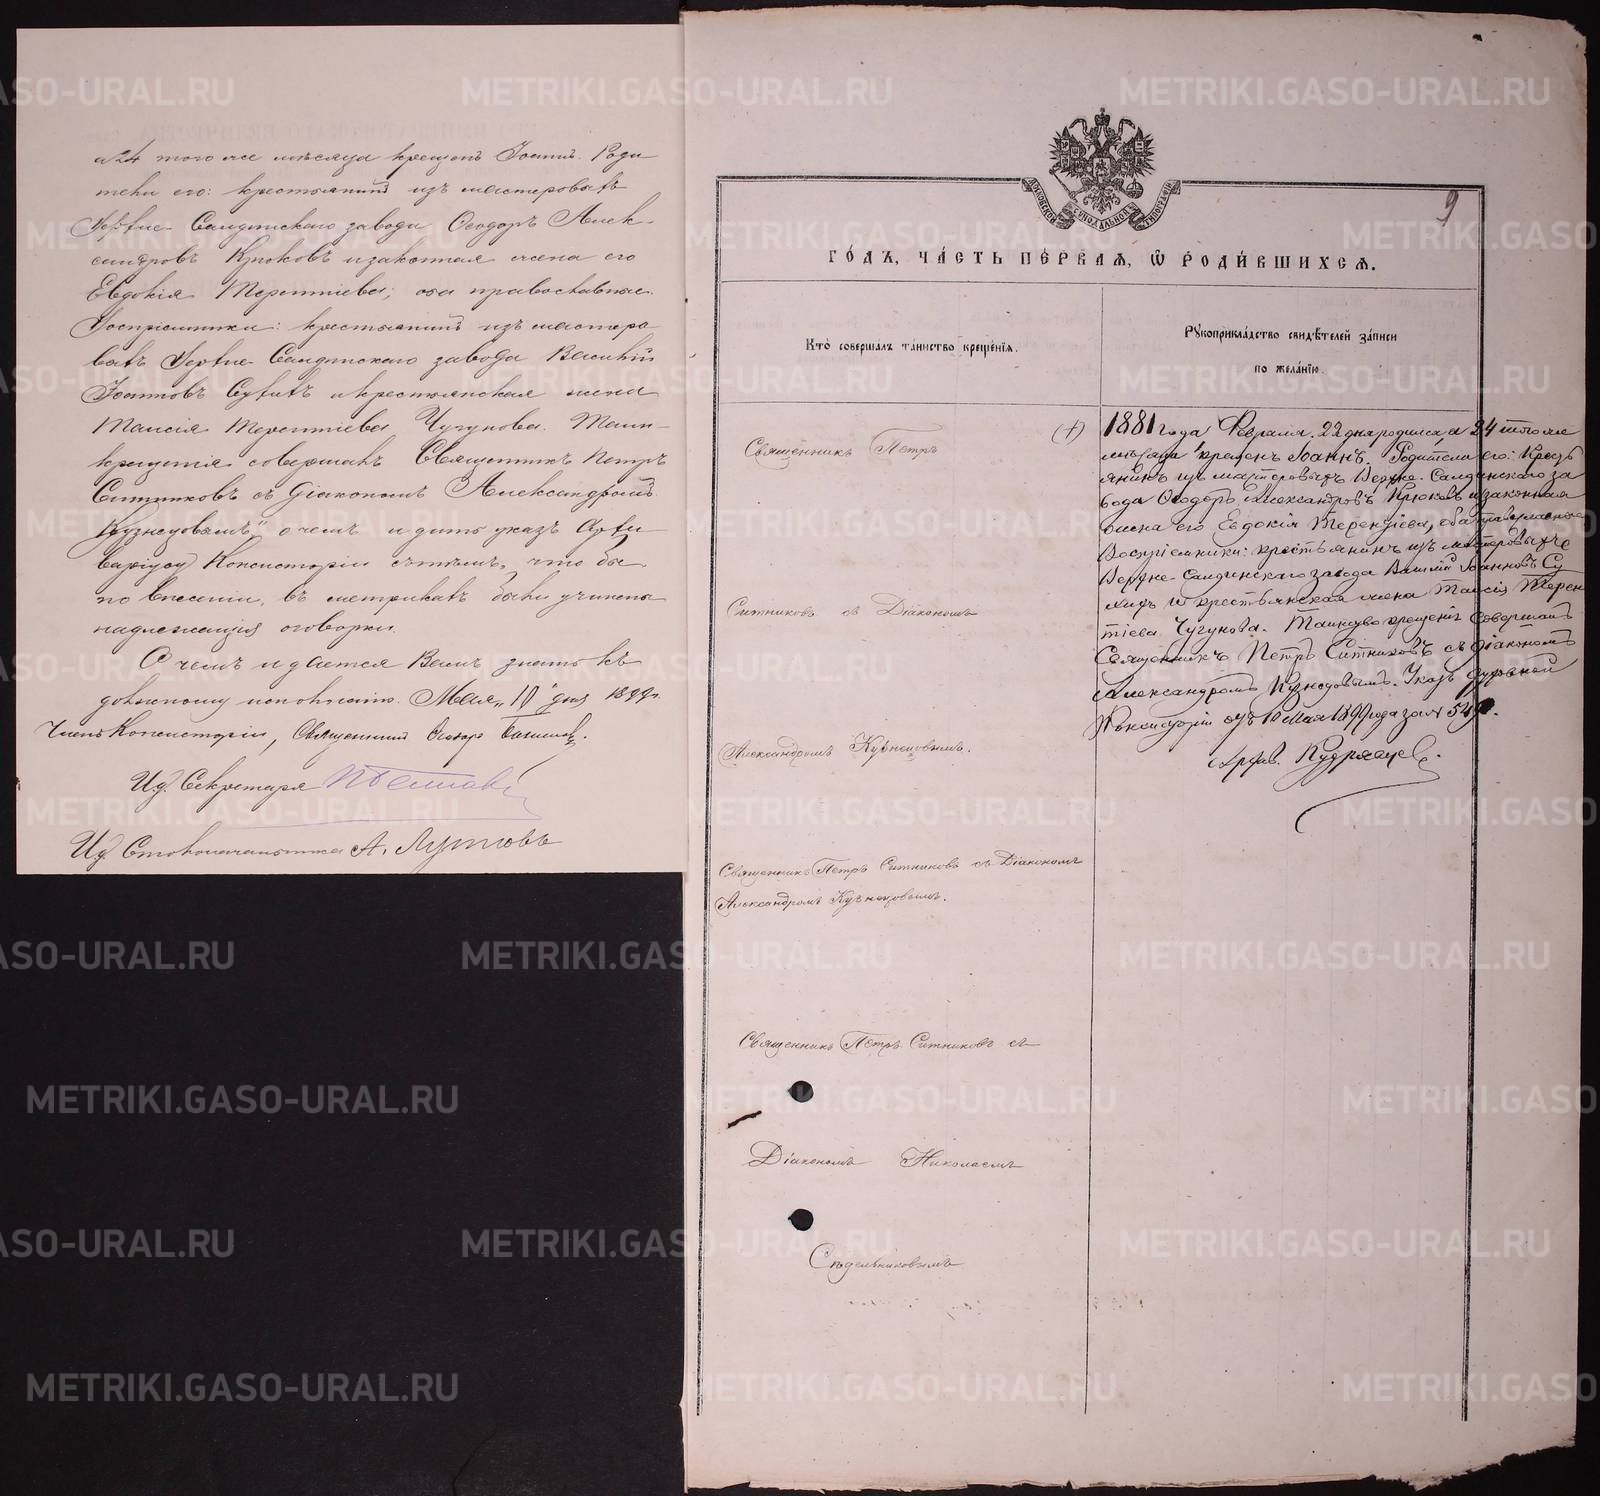 а 24 того же мѣсяца крещенъ Іоаннъ. Роди
тели его: крестьянинъ изъ мастеровыхъ
Верхне-Салдинскаго завода Ѳеодоръ Алек-
сандровъ Крюковъ и законная жена его
Евдокія Терентіева; оба православные.
Воспріемники: крестьянинъ изъ мастеро-
выхъ Верхне-Салдинскаго завода Василій
Іоанновъ Сухихъ и крестьянская жена
Таисія Терентіева Чугунова. Таин-
крещенія совершалъ Священникъ Петръ
Ситниковъ съ Діакономъ Александромъ
Кузнецовымъ", о чемъ и дать указъ Архи
варіусу Консисторіи съ тѣмъ, что бы
по внесеніи, въ метрикахъ были учинены
надлежащія оговорки.
О чемъ и дается Вамъ знать къ
должному исполненію. Мая "10" дня 1899 г.
Членъ Консисторіи, Священникъ
И.д. Секретаря
И.д. Столоначальника А.
9
ГОДЪ, ЧАСТЬ ПЕРВАЯ, Ѡ РОДИВШИХСЯ.
МОСКОВСКОЙ СУНОДАЛЬНОЙ ТИПОГРАФІИ
Кто совершалъ таинство крещенія.
Рукоприкладство свидѣтелей записи
по желанію.
Священникъ Петръ
Ситниковъ съ Діакономъ
Александромъ Кузнецовымъ.
Священникъ Петръ Ситниковъ съ Діакономъ
Александромъ Кузнецовымъ.
Священникъ Петръ Ситниковъ съ
Діакономъ Николаемъ
Сѣдельниковымъ
(+) 1881 года Февраля 22 дня родился, а 24 того же
мѣсяца крещенъ Іоаннъ. Родители его: Крестъ
янинъ изъ мастеровыхъ Верхне-Салдинскаго за
вода Ѳеодоръ Александровъ Крюковъ и законная
жена его Евдокія Терентіева, оба православные
Воспріемники: крестьянинъ изъ мастеровыхъ
Верхне-Салдинскаго завода Василій Іоанновъ Су
хихъ и крестьянская жена Таисія Терен
тіева Чугунова. Таинство крещенія совершалъ
Священникъ Петръ Ситниковъ съ діакономъ
Александромъ Кузнецовымъ. Указъ духовной
Консисторіи отъ 10 Мая 1899 года за №
Архив. Кудрявцев.
METRIKI.GASO-URAL.RU